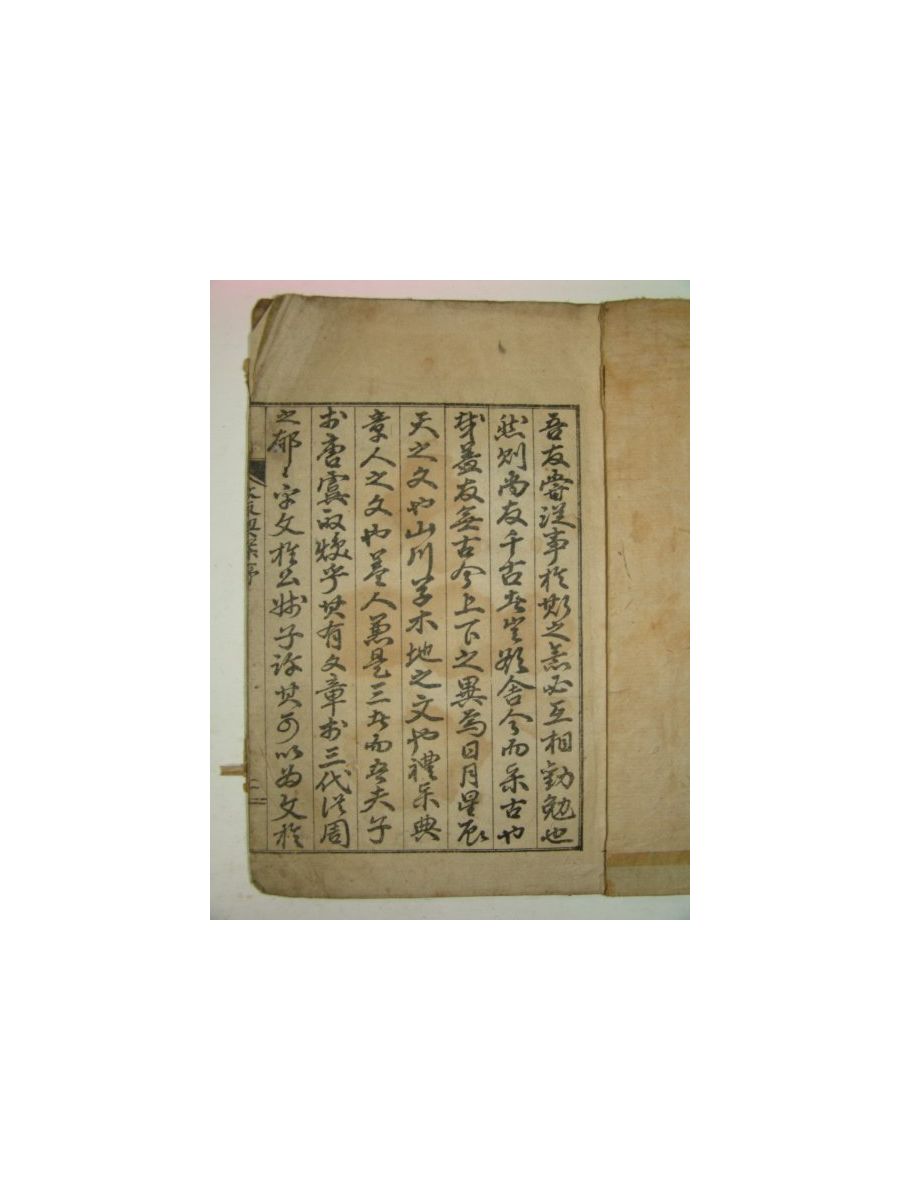 吾友嘗從事於斯之意必互相勸勉也
然則尚友千古者豈欲舍今而樂古也
哉蓋友無古今上下之異焉日月星辰
天之文也山川草木地之文也禮樂典
章人之文也 人 是三者而吾夫子
於唐虞 乎其有文章於三代從周
之郁〻乎文於公 子許其可以為文於